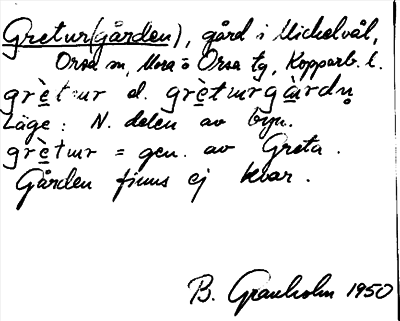 Gretur(gården), gård i Mickelvål,
Orsa sn, Mora o Orsa tg, Kopparb. l.
grètɯr el. grètɯrgàrdn̥
Läge: N. delen av byn.
grètɯr = gen. av Greta.
Gården finns ej kvar.
B. Granholm 1950